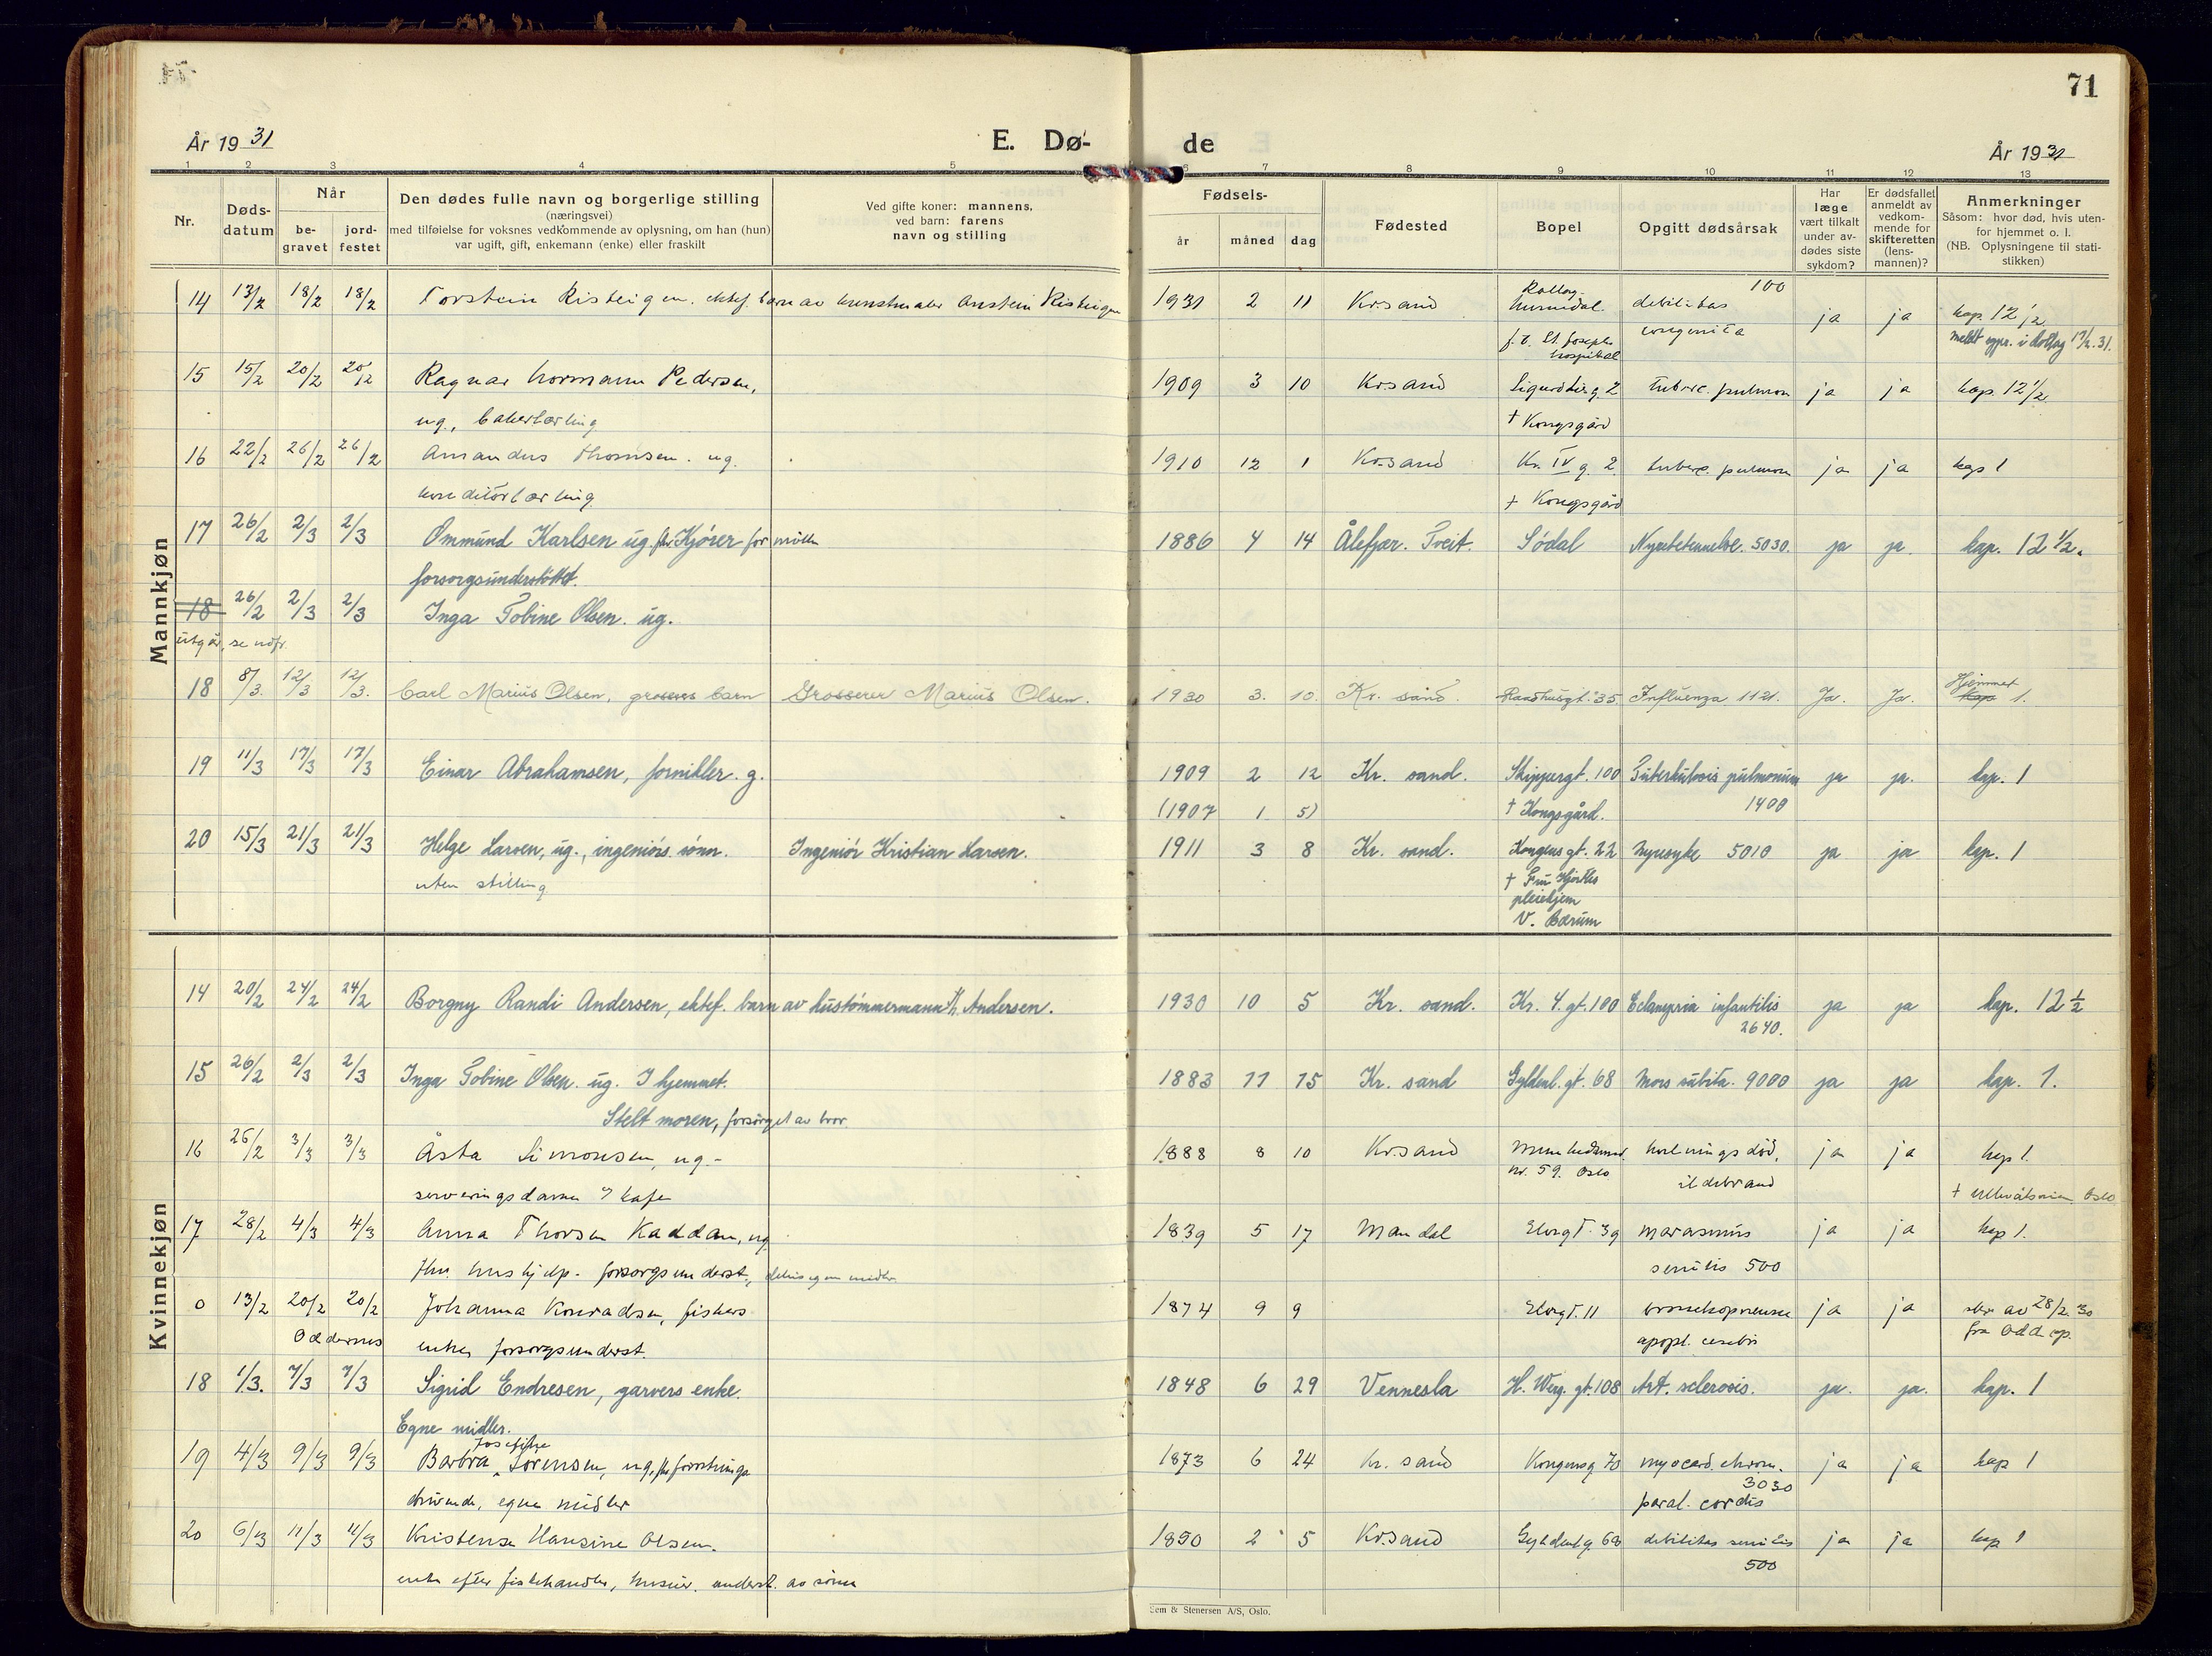 71
År 19 31
E. Dø-
de
År 19 31
1 2 3 4 5 6 7 8 9 10 11 12 13
Nr.
Døds-
datum
Når
be-
gravet
jord-
festet
Den dødes fulle navn og borgerlige stilling
(næringsvei)
med tilføielse for voksnes vedkommende av oplysning, om han (hun)
var ugift, gift, enkemann (enke) eller fraskilt
Ved gifte koner: mannens,
ved barn: farens
navn og stilling
Fødsels-
år måned dag
Fødested
Bopel
Opgitt dødsårsak
Har
læge
vært tilkalt
under av-
dødes siste
sykdom?
Er dødsfallet
anmeldt av
vedkom-
mende for
skifteretten
(lens-
mannen)?
Anmerkninger
Såsom: hvor død, hvis uten-
for hjemmet o. l.
(NB. Oplysningene til stati-
stikken)
Mannkjøn
14 13/2 18/2 18/2 Torstein Risteigen. ektef. barn av kunstmaler Anstein Risteigen 1931 2 11 Kr.sand Rollag Numedal. debilitas 100 ja ja kap. 12 1/2
f. o. St. Josephs congenita meldt sgpr. i Rollag 17/2.31.
hospital
15 15/2 20/2 20/2 Ragnar Normann Pedersen, 1909 3 10 Kr.sand 2 tuberc. pulmon ja ja kap. 12 1/2
ug., bakerlærling † Kongsgård
16 22/2 26/2 26/2 Amandus Thomsen. ug. 1910 12 1 Kr.sand Kr. IV g. 2 tuberc. pulmon ja ja kap 1
konditorlærling † Kongsgård
17 26/2 2/3 2/3 Ommund Karlsen ug. fhv. Kjører for møllen 1886 4 14 Ålefjær. Tveit. Sødal Nyrebetennelse. 5030. ja ja. kap. 12 1/2.
forsorgsunderstøttet.
18 26/2 2/3 2/3 Inga Tobine Olsen. ug.
utgår, se ndfr.
18 8/3. 12/3 12/3. Carl Marius Olsen, grosserers barn Grosserer Marius Olsen. 1930 3. 10. Kr. sand. Raadhusgt. 35 Influenza 1121. Ja. Ja. Hjemmet kap 1.
19 11/3 17/3 17/3 Einar Abrahamsen, fornikler. g. 1909 2 12 Kr. sand. Skippergt. 100 Tuberkulosis pulmonum ja ja. kap. 1
(1907 1 5) † Kongsgård. 1400
20 15/3 21/3 21/3 Helge Larsen, ug., ingeniørs sønn. Ingeniør Kristian Larsen. 1911 3 8 Kr. sand. Kongens gt. 22 Nyresyke 5010 ja ja kap. 1
uten stilling † Fru Hjorths
pleiehjem
V. Bærum
Kvinnekjøn
14 20/2 24/2 24/2 Borgny Randi Andersen, ektef. barn av hustømmermann Andersen. 1930 10 5 Kr. sand. Kr. 4. gt. 100 Eclampsia infantilis ja ja kap. 12 1/2
2640.
15 26/2 2/3 2/3 Inga Tobine Olsen. ug. I hjemmet. 1883 11 15 Kr. sand Gyldenl. gt. 68 Mors subita. 9000 ja ja kap. 1.
Stelt moren, forsørget av bror.
16 26/2 3/3 3/3 Åsta Simonsen, ug. - 1888 8 10 Kr.sand Munkedamsv. kvelningsdød, ja ja kap 1.
serveringsdame kafe nr. 59. Oslo ildebrand † Ullevål Oslo
17 28/2 4/3 4/3 Anna Thorsen Kaddan, ug 1839 5 17 Mandal Elvegt. 39 marasmus ja ja kap 1.
fhv. hushjelp. forsorgsunderst., delvis egne midler senilis 500
0 13/2 20/2 20/2 Johanna Konradsen, fiskers 1874 9 9 Elvegt. 11 bronchopneumoni ja ja av 28/2 30
Oddernes enke forsorgsunderst. apopl. cerebri fra Odd. sp.
18 1/3. 7/3 7/3 Sigrid Endresen, garvers enke. 1848 6 29 Vennesla H. Werg. gt. 108 Art. sclerosis. ja. ja. kap. 1
Egne midler.
19 4/3 9/3 9/3 Barbra Josefine Sørensen, ug, fhv forretnings 1873 6 24 Kr. sand Kongensg 70 myocard. chron. ja ja kap 1
drivende, egne midler 3030 paral. cordis
20 6/3 11/3 11/3 Kristense Hansine Olsen. 1850 2 5 Kr.sand Gyldenl.g 68 debilitas senilis ja ja kap 1
enke efter fiskehandler, underst. av sønn 500
Sem & Stenersen A/S, Oslo.